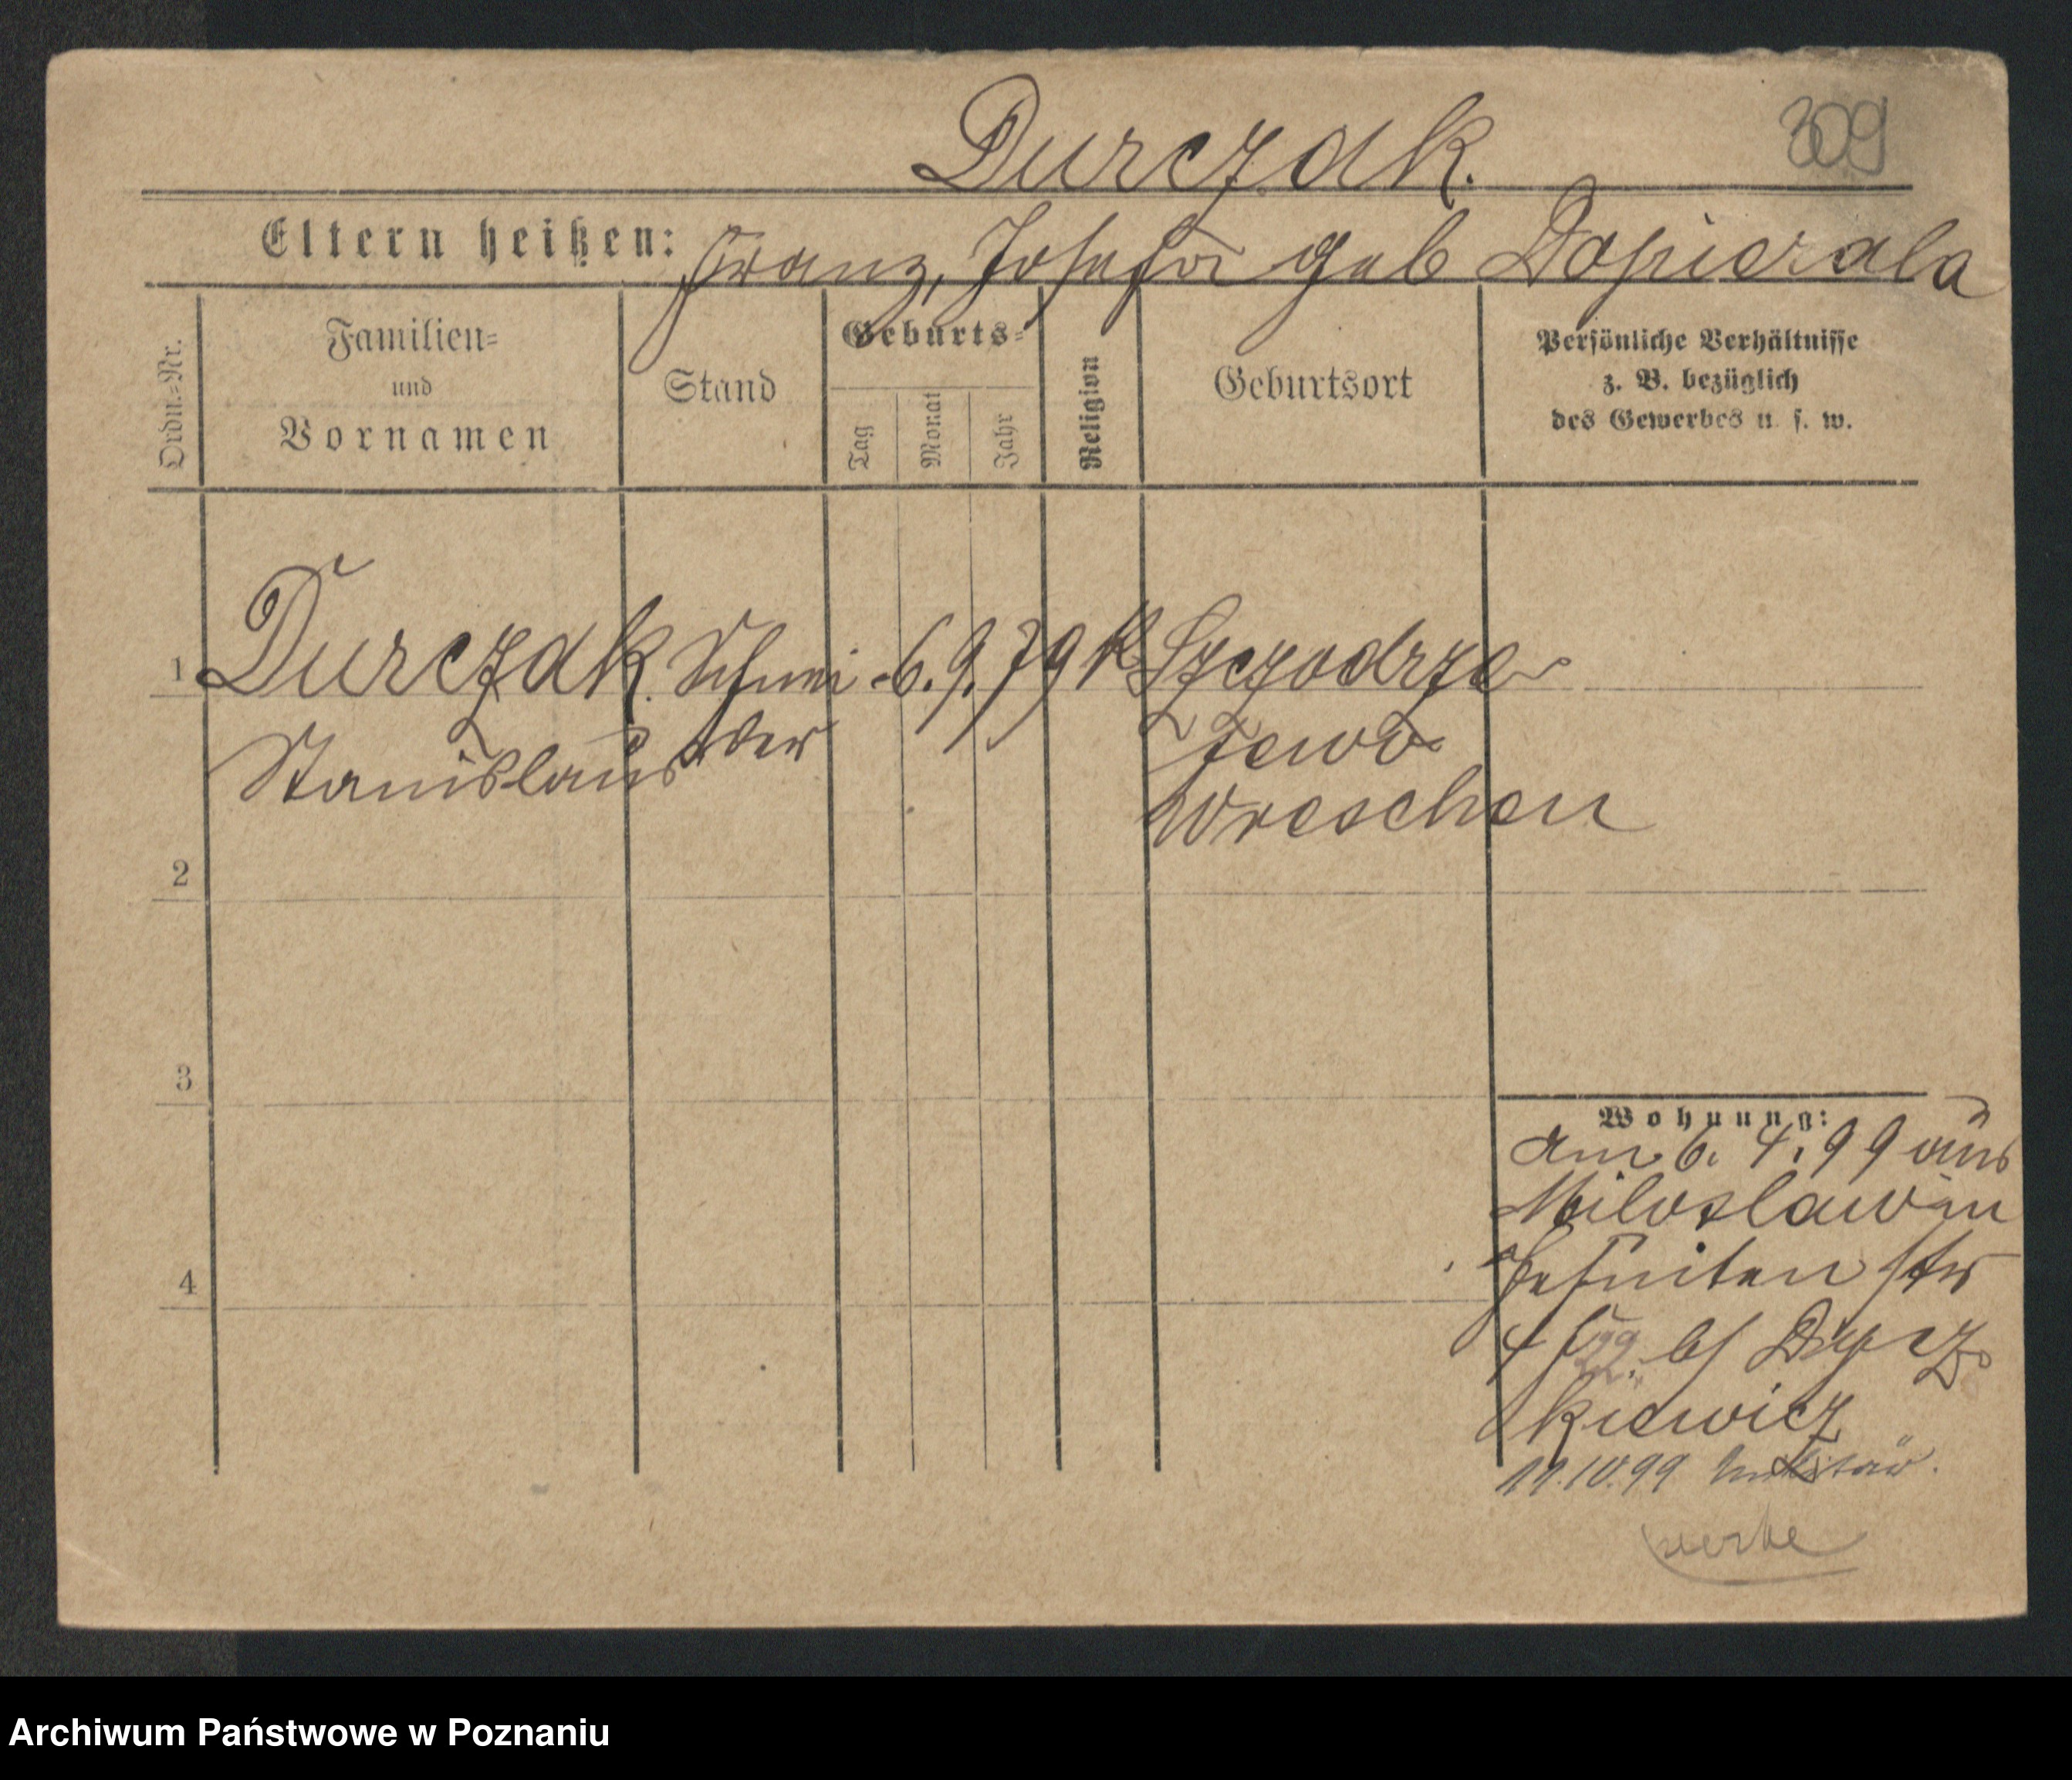 309
Durczak.
Eltern heißen: Franz, Josefa geb Dopierala
Ordn.-Nr.
Familien-
und
Vornamen
Stand
Geburts-
Tag
Monat
Jahr
Religion
Geburtsort
Persönliche Verhältnisse
z. B. bezüglich
des Gewerbes u. s. w.
1 Durczak Schnei- 6. 9. 79 K Szczodrze
Stanislaus der jewo
Wreschen
2
3
4
Wohnung:
Am 6. 4. 99 aus
Miloslaw in
Jesuiten str
4 bei
kiewicz
11.10.99 Militär.
Archiwum Państwowe w Poznaniu